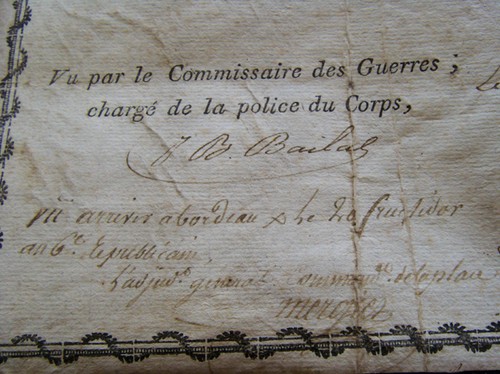 Vu par le Commissaire des Guerres ;
chargé de la police du Corps,
J B. Bailac
vu arriver a bordeau le fructidor
an 6e. Republicain,
L'adjud. general Command. de la place